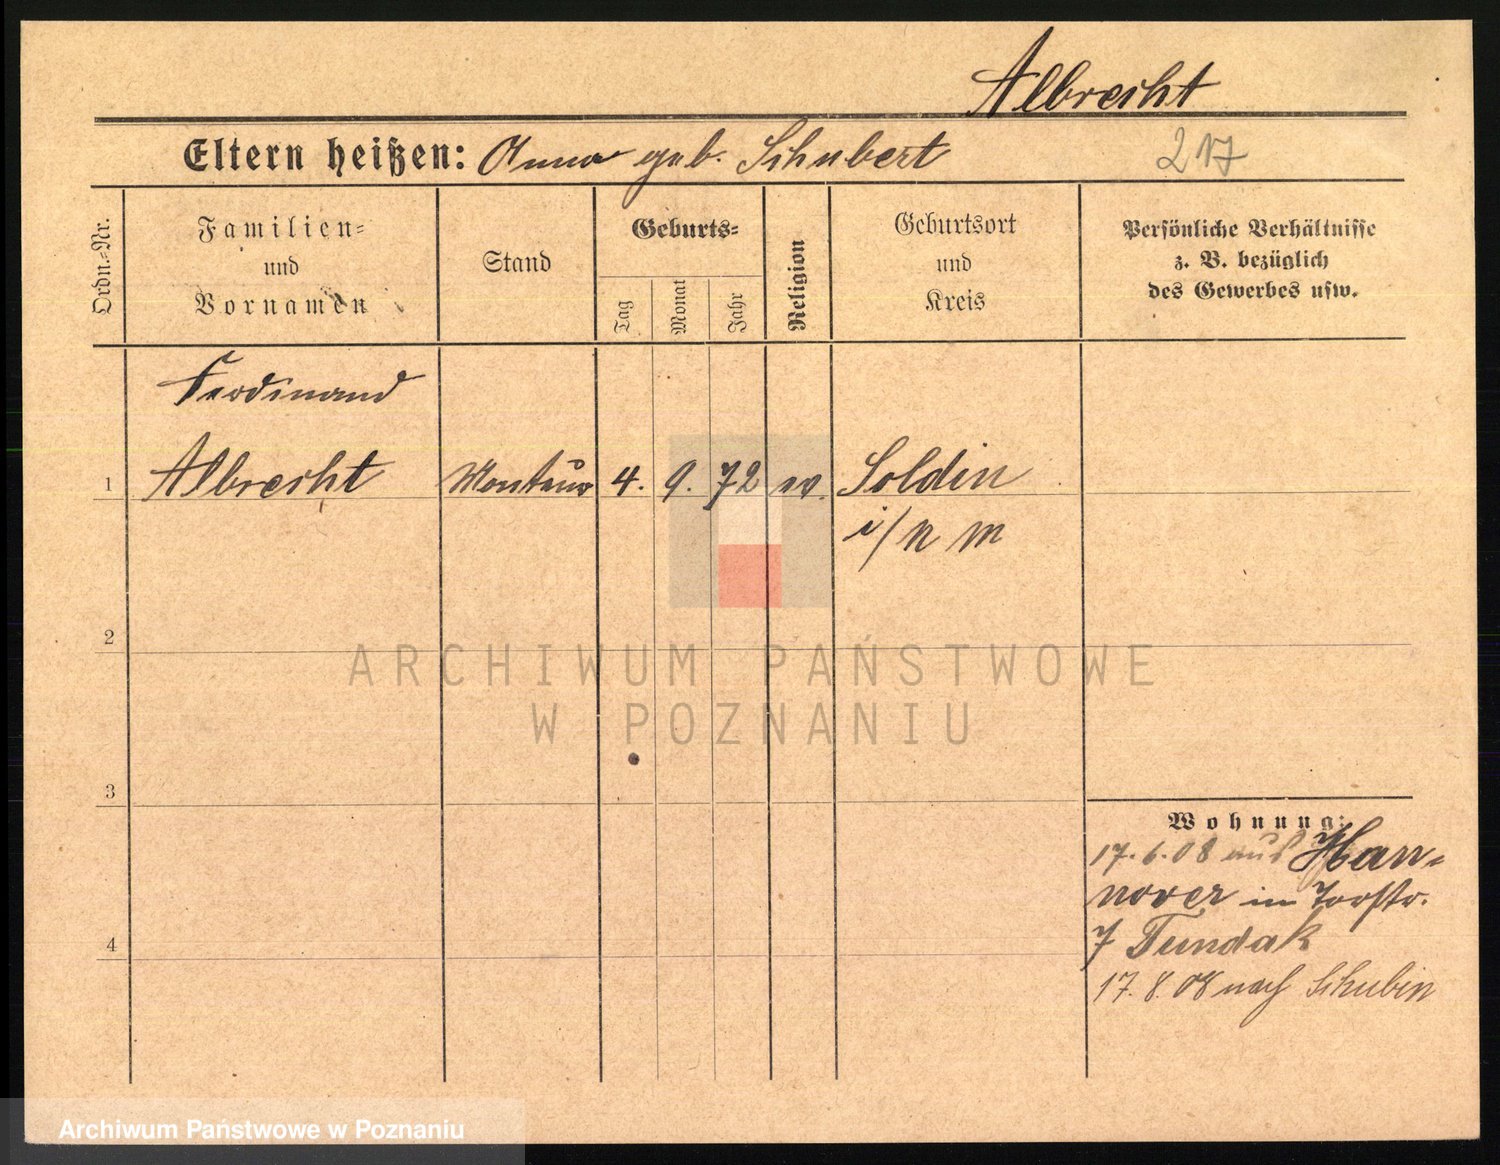 Albrecht
Eltern heißen: Anna geb. Schubert
217
Ordn.-Nr.
Familien-
und
Vornamen
Stand
Geburts-
Tag
Monat
Jahr
Religion
Geburtsort
und
Kreis
Persönliche Verhältnisse
z. B. bezüglich
des Gewerbes usw.
Ferdinand
1 Albrecht Monteur 4. 9. 72 ev. Soldin
i/n m
2
ARCHIWUM PAŃSTWOWE
W POZNANIU
3
Wohnung:
17.6.08 aus Han-
nover in Torstr.
7 Tundak
4
17.8.08 nach Schubin
Archiwum Państwowe w Poznaniu